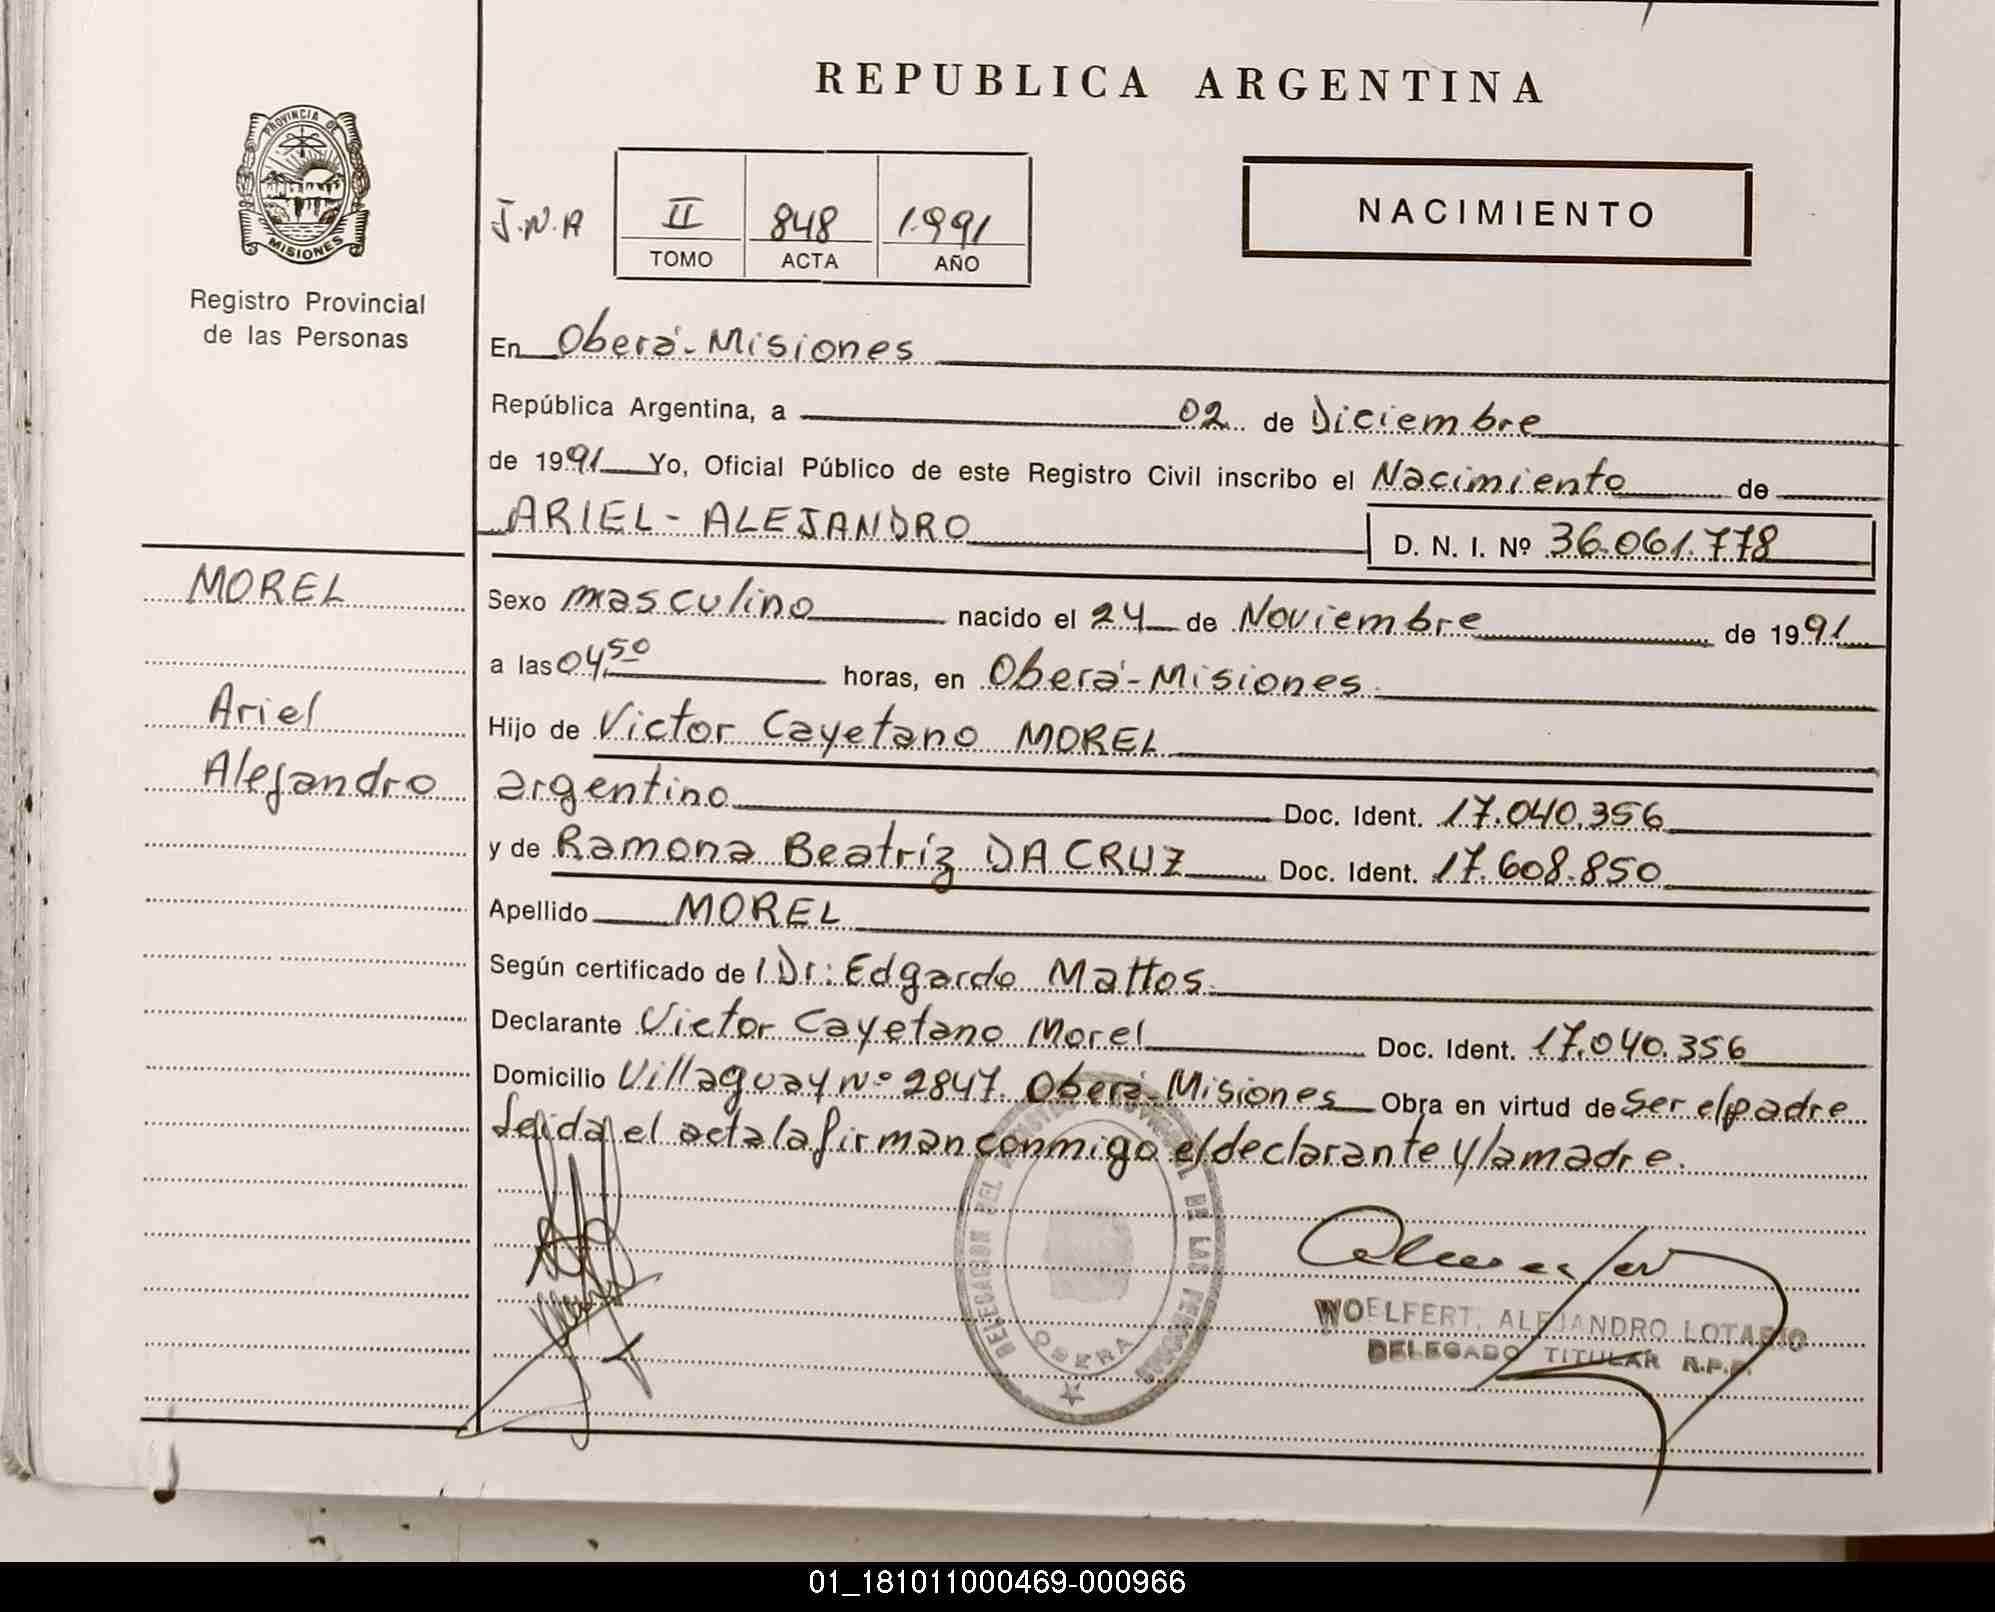 REPUBLICA ARGENTINA
PROVINCIA DE
MISIONES
Registro Provincial
de las Personas
J.N.A
II 848 1.991
TOMO ACTA AÑO
NACIMIENTO
En Oberá-Misiones
República Argentina, a 02 de Diciembre
de 1991 Yo, Oficial Público de este Registro Civil inscribo el Nacimiento de
ARIEL-ALEJANDRO
D. N. I. Nº 36.061.778
MOREL
Ariel
Alejandro
Sexo masculino nacido el 24 de Noviembre de 1991
a las 04,50 horas, en Oberá-Misiones
Hijo de Victor Cayetano MOREL
argentino Doc. Ident. 17.040.356
y de Ramona Beatríz DA CRUZ Doc. Ident. 17.608.850
Apellido MOREL
Según certificado de l Dr: Edgardo Mattos.
Declarante Victor Cayetano Morel Doc. Ident. 17.040.356
Domicilio Villaguay Nº 2847. Oberá-Misiones Obra en virtud de ser el padre
Leida el acta la firman conmigo el declarante y la madre.
DELEGACION DEL REGISTRO PROVINCIAL DE LAS PERSONAS
OBERA
WOELFERT, ALEJANDRO LOTARIO
DELEGADO TITULAR R.P.P.
01_181011000469-000966